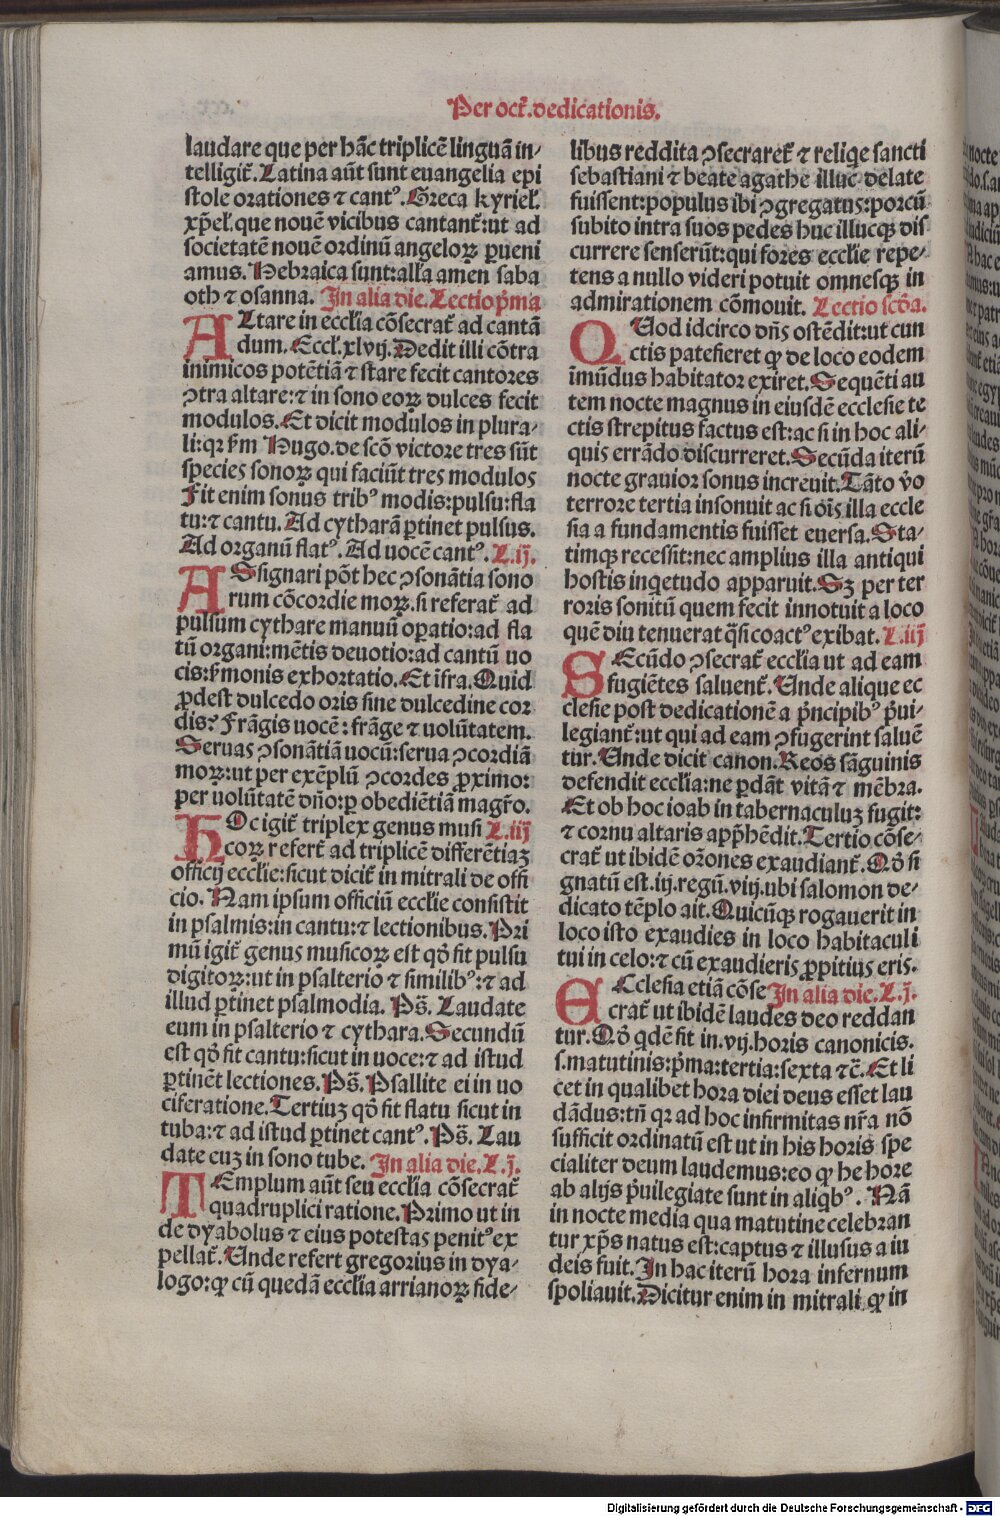 Per oct̄. dedicationis.
laudare que per hāc triplicē linguā in-
telligit̄. Latina aūt sunt euangelia epi
stole orationes ⁊ cantꝰ. Greca kyriel̄.
xp̄el̄. que nouē vicibus cantant̄: ut ad
societatē nouē ordinū angeloꝝ ꝑueni
amus. Hebraica sunt: all'a amen saba
oth ⁊ osanna. In alia die. Lectio p̄ma
ALtare in eccl'ia cōsecrat̄ ad cantā
dum. Eccl̄. xlvij. Dedit illi cōtra
inimicos potētiā ⁊ stare fecit cantores
ꝯtra altare: ⁊ in sono eoꝝ dulces fecit
modulos. Et dicit modulos in plura-
li: qꝛ ẜm Hugo. de scō victore tres sūt
species sonoꝝ qui faciūt tres modulos
Fit enim sonus tribꝰ modis: pulsu: fla
tu: ⁊ cantu. Ad cytharā ꝑtinet pulsus.
Ad organū flatꝰ. Ad uocē cantꝰ. L. ij.
ASsignari pōt hec ꝯsonātia sono
rum cōcordie moꝝ. si referat̄ ad
pulsum cythare manuū oꝑatio: ad fla
tū organi: mētis deuotio: ad cantū uo
cis: ẜmonis exhortatio. Et īfra. Quid
ꝓdest dulcedo oris sine dulcedine cor
dis? Frāgis uocē: frāge ⁊ uolūtatem.
Seruas ꝯsonātiā uocū: serua ꝯcordiā
moꝝ: ut per exēplū ꝯcordes ꝓximo:
per uolūtatē dn̄o: ꝑ obediētiā magr̄o.
HOc igit̄ triplex genus musi L. iij
coꝝ refert̄ ad triplicē differētiaꝫ
officij eccl'ie: sicut dicit̄ in mitrali de offi
cio. Nam ipsum officiū eccl'ie consistit
in psalmis: in cantu: ⁊ lectionibus. Pri
mū igit̄ genus musicoꝝ est qd̄ fit pulsu
digitoꝝ: ut in psalterio ⁊ similibꝰ: ⁊ ad
illud ꝑtinet psalmodia. Ps̄. Laudate
eum in psalterio ⁊ cythara. Secundū
est qd̄ fit cantu: sicut in uoce: ⁊ ad istud
ꝑtinēt lectiones. Ps̄. Psallite ei in uo
ciferatione. Tertiuꝫ qd̄ fit flatu sicut in
tuba: ⁊ ad istud ꝑtinet cantꝰ. Ps̄. Lau
date euꝫ in sono tube. In alia die. L. j.
TEmplum aūt seu eccl'ia cōsecrat̄
quadruplici ratione. Primo ut in
de dyabolus ⁊ eius potestas penitꝰ ex
pellat̄. Unde refert gregorius in dya-
logo: ꝙ cū quedā eccl'ia arrianoꝝ fide-
libus reddita ꝯsecraret̄ ⁊ reliqͥe sancti
sebastiani ⁊ beate agathe illuc delate
fuissent: populus ibi ꝯgregatus: porcū
subito intra suos pedes huc illucqꝫ dis
currere senserūt: qui fores eccl'ie repe-
tens a nullo videri potuit omnesqꝫ in
admirationem cōmouit. Lectio scd̄a.
QUod idcirco dn̄s ostēdit: ut cun
ctis patefieret ꝙ de loco eodem
īmūdus habitator exiret. Sequēti au
tem nocte magnus in eiusdē ecclesie te
ctis strepitus factus est: ac si in hoc ali-
quis errādo discurreret. Secūda iterū
nocte grauior sonus increuit. Tāto v̊o
terrore tertia insonuit ac si oīs illa eccle
sia a fundamentis fuisset euersa. Sta-
timqꝫ recessit: nec amplius illa antiqui
hostis inqͥetudo apparuit. Sꝫ per ter
roris sonitū quem fecit innotuit a loco
quē diu tenuerat qͣsi coactꝰ exibat. L. iij
SEcūdo ꝯsecrat̄ eccl'ia ut ad eam
fugiētes saluent̄. Unde alique ec
clesie post dedicationē a p̄ncipibꝰ p̄ui-
legiant̄: ut qui ad eam ꝯfugerint saluē
tur. Unde dicit canon. Reos sāguinis
defendit eccl'ia: ne ꝑdāt vitā ⁊ mēbra.
Et ob hoc ioab in tabernaculuꝫ fugit:
⁊ cornu altaris app̄hēdit. Tertio cōse-
crat̄ ut ibidē or̄ones exaudiant̄. Qd̄ si
gnatū est. iij. regū. viij. ubi salomon de-
dicato tēplo ait. Quicūqꝫ rogauerit in
loco isto exaudies in loco habitaculi
tui in celo: ⁊ cū exaudieris ꝓpitius eris.
ECclesia etiā cōse In alia die. L. j.
crat̄ ut ibidē laudes deo reddan
tur. Qd̄ qͥdē fit in. vij. horis canonicis.
s. matutinis: p̄ma: tertia: sexta ⁊c̄. Et li
cet in qualibet hora diei deus esset lau
dādus: tn̄ qꝛ ad hoc infirmitas nr̄a nō
sufficit ordinatū est ut in his horis spe
cialiter deum laudemus: eo ꝙ he hore
ab alijs p̄uilegiate sunt in aliqͥbꝰ. Nā
in nocte media qua matutine celebran
tur xp̄s natus est: captus ⁊ illusus a iu
deis fuit. In hac iterū hora infernum
spoliauit. Dicitur enim in mitrali ꝙ in
Digitalisierung gefördert durch die Deutsche Forschungsgemeinschaft - DFG